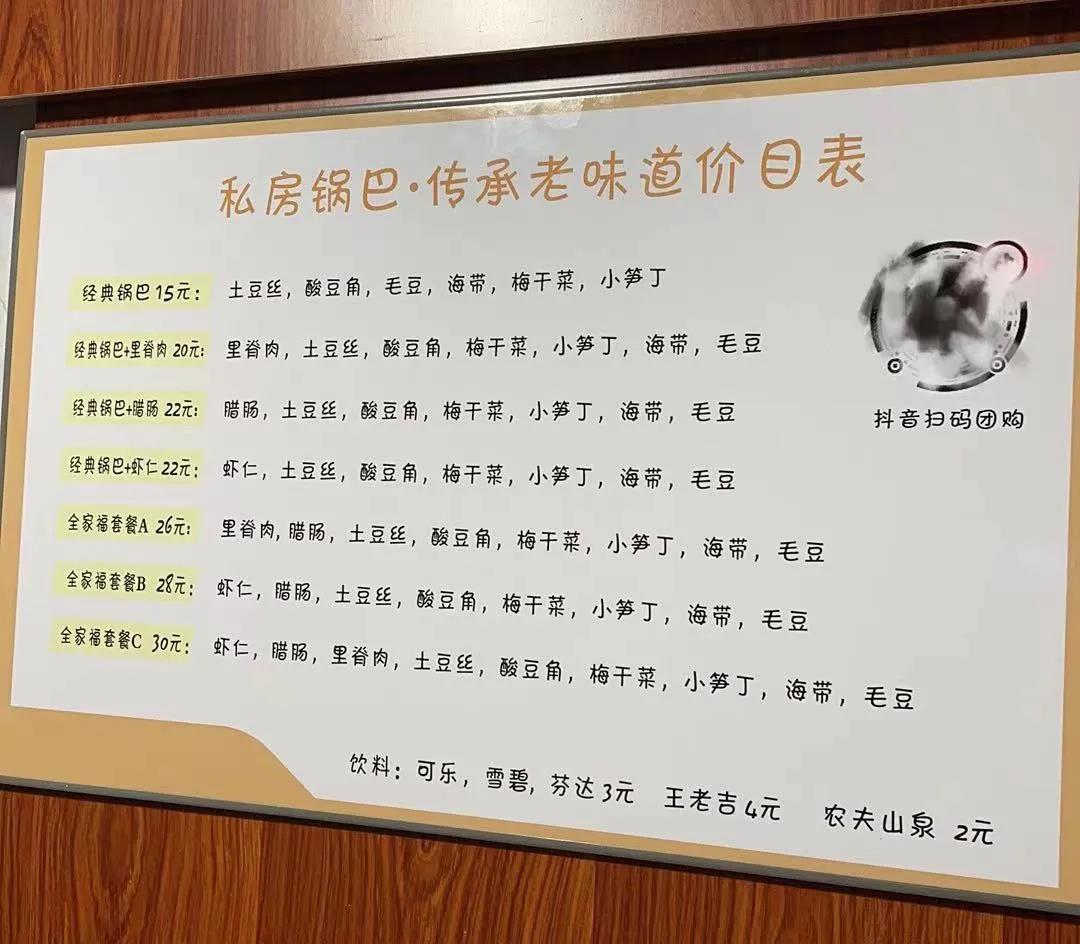 私房锅巴·传承老味道价目表
经典锅巴15元： 土豆丝，酸豆角，毛豆，海带，梅干菜，小笋丁
经典锅巴+里脊肉 20元： 里脊肉，土豆丝，酸豆角，梅干菜，小笋丁，海带，毛豆
经典锅巴+腊肠 22元： 腊肠，土豆丝，酸豆角，梅干菜，小笋丁，海带，毛豆
经典锅巴+虾仁 22元： 虾仁，土豆丝，酸豆角，梅干菜，小笋丁，海带，毛豆
全家福套餐A 26元： 里脊肉，腊肠，土豆丝，酸豆角，梅干菜，小笋丁，海带，毛豆
全家福套餐B 28元： 虾仁，腊肠，土豆丝，酸豆角，梅干菜，小笋丁，海带，毛豆
全家福套餐C 30元： 虾仁，腊肠，里脊肉，土豆丝，酸豆角，梅干菜，小笋丁，海带，毛豆
抖音扫码团购
饮料：可乐，雪碧，芬达3元 王老吉4元 农夫山泉 2元